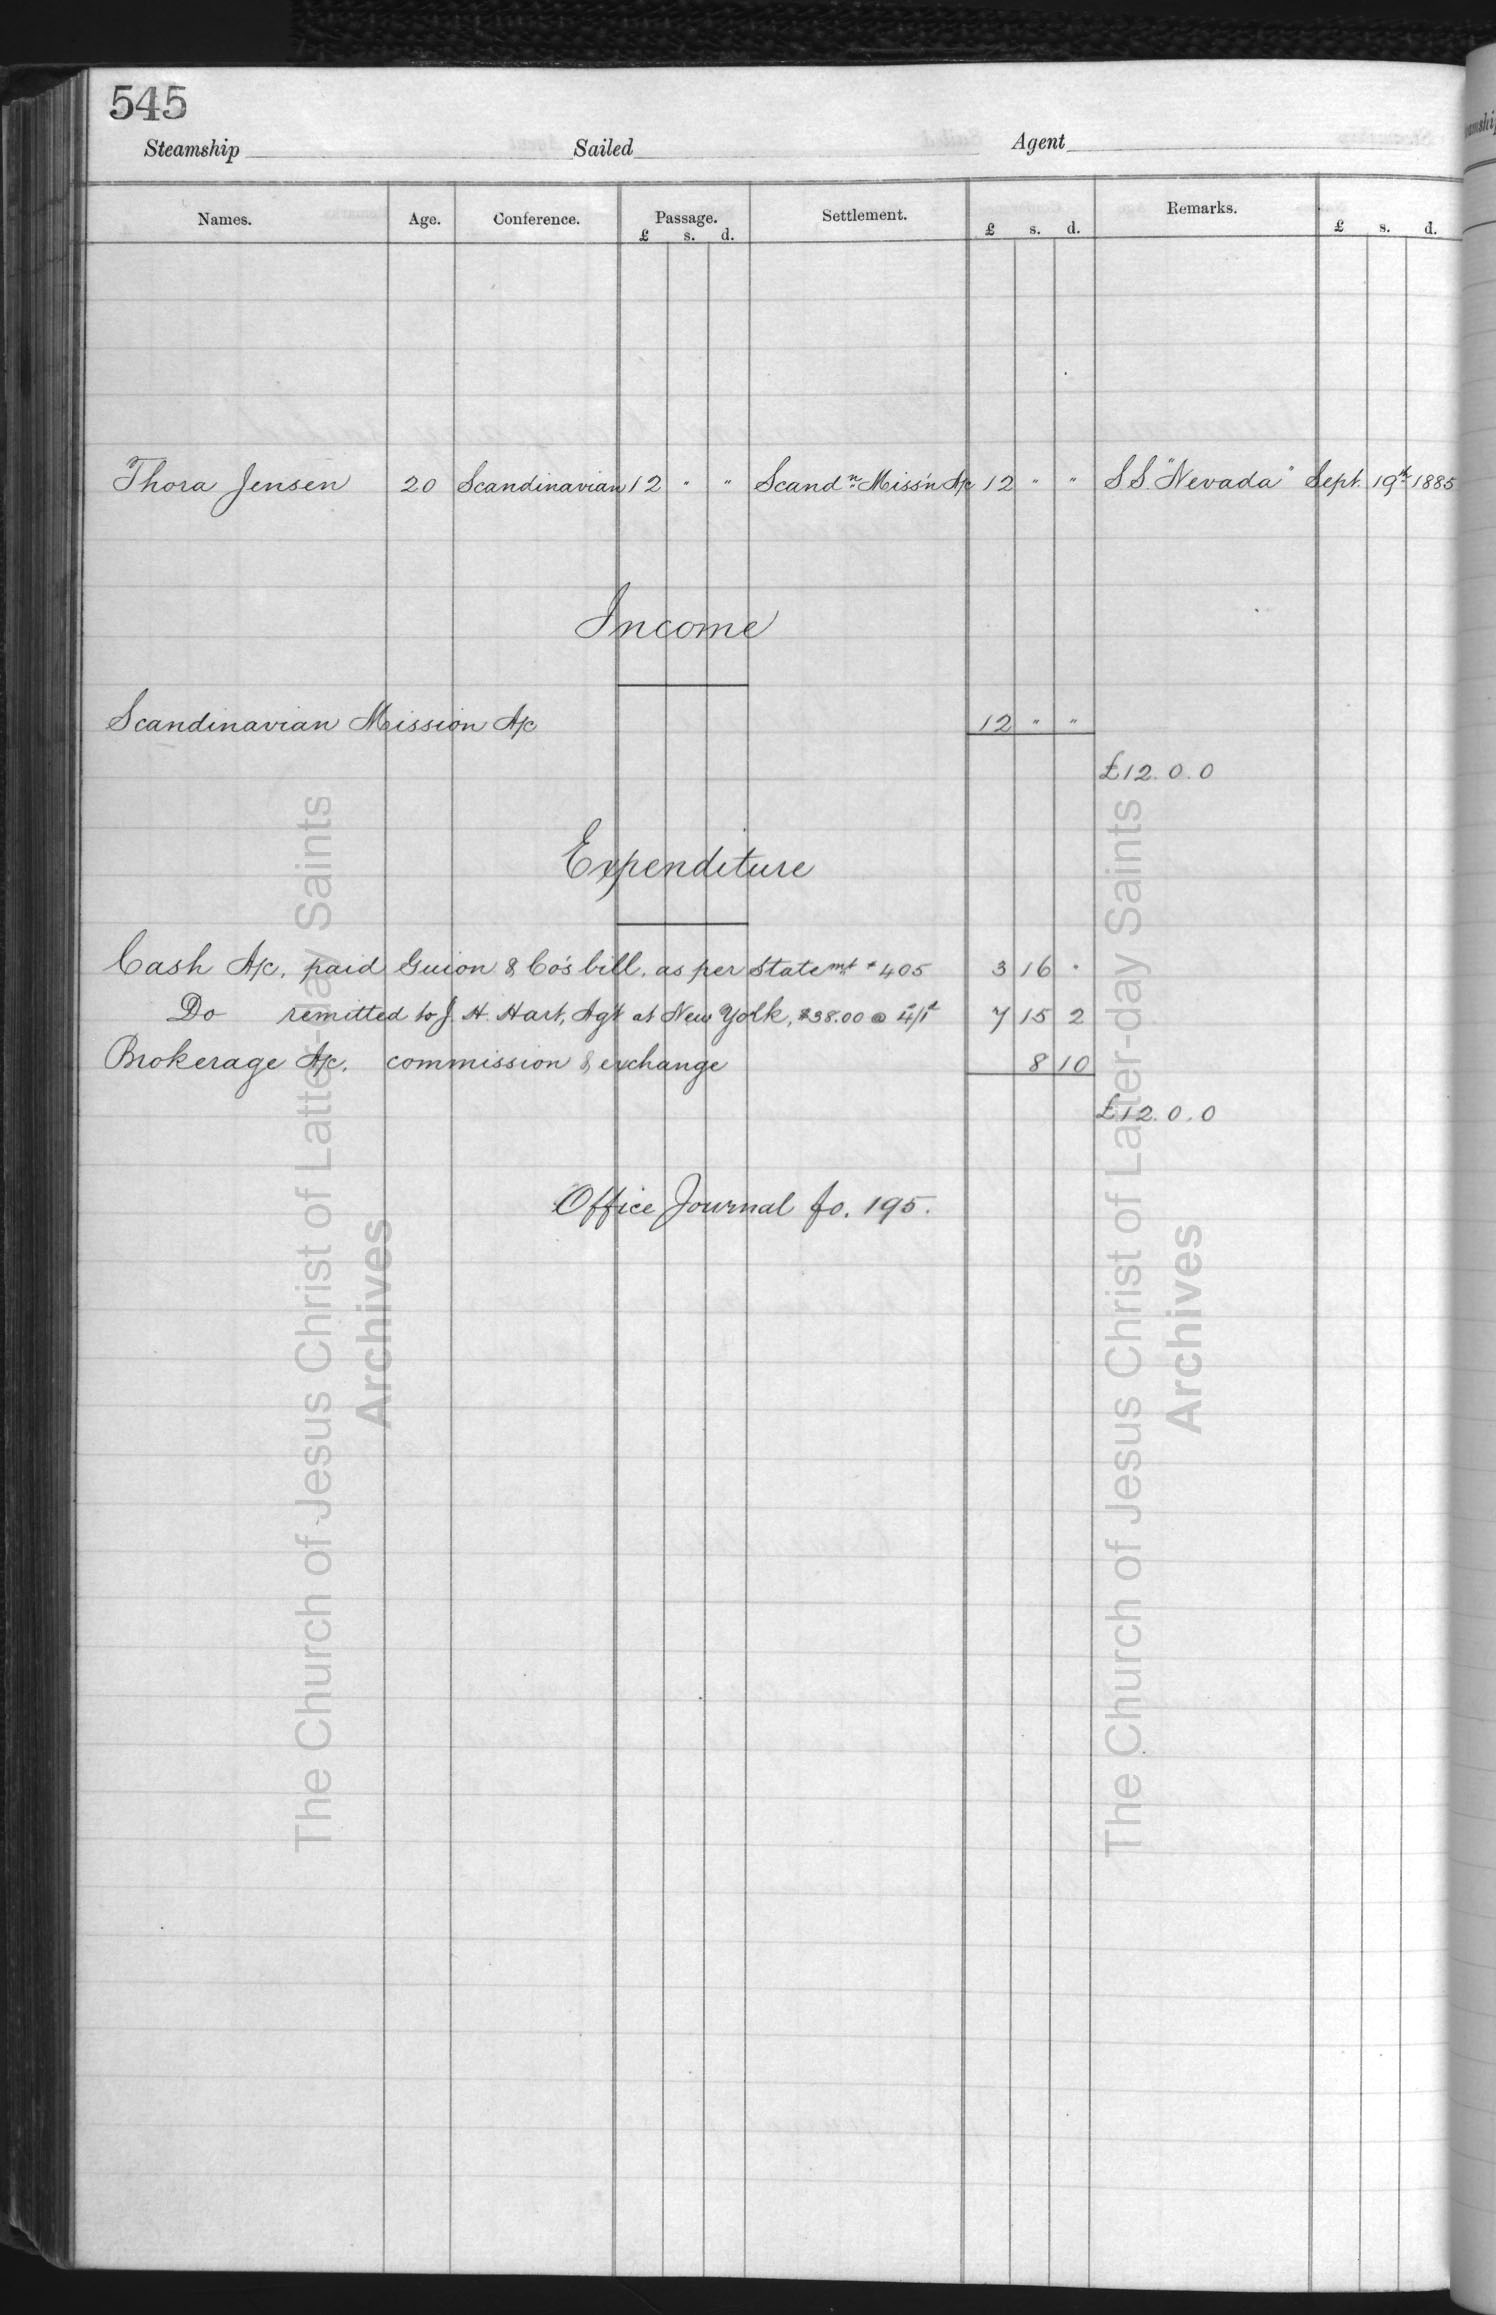 545
Steamship Sailed Agent
Names. Age. Conference. Passage. Settlement. Remarks.
£ s. d. £ s. d. £ s. d.
Thora Jensen 20 Scandinavian 12 " " Scandn Miss'n A/c 12 " " S.S. "Nevada" Sept. 19th 1885
Income
Scandinavian Mission A/c 12 " "
£12.0.0
Expenditure
Cash A/c. paid Guion & Co's bill, as per Statemt # 405 3 16 "
Do remitted to J. H. Hart, Ag't at New York, $38.00 @ 4/1d 7 15 2
Brokerage A/c. commission & exchange 8 10
£12.0.0
Office Journal fo. 195.
The Church of Jesus Christ of Latter-day Saints
Archives
The Church of Jesus Christ of Latter-day Saints
Archives